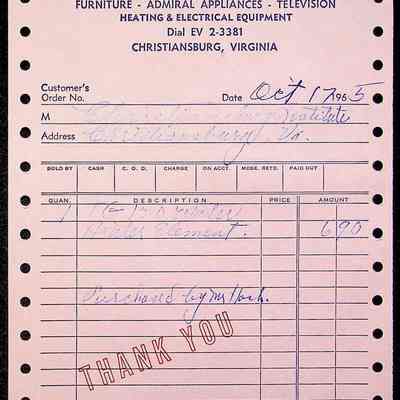 FURNITURE - ADMIRAL APPLIANCES - TELEVISION
HEATING & ELECTRICAL EQUIPMENT
Dial EV 2-3381
CHRISTIANSBURG, VIRGINIA
Customer's
Order No.
Date Oct 17 1965
M Christiansburg Institute
Address Christiansburg, Va.
SOLD BY CASH C. O. D. CHARGE ON ACCT. MDSE. RETD. PAID OUT
QUAN. DESCRIPTION PRICE AMOUNT
1 Water
Heater Element. 6 90
Purchased by Mr.
THANK YOU